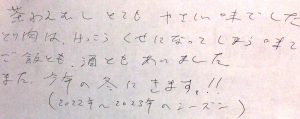 茶わんむし とても やさしい味でした
とり肉は けっこう くせになってしまう味で
ご飯とも、酒ともあいました
また 今年の冬にきます。!!
(2022年〜2023年のシーズン)